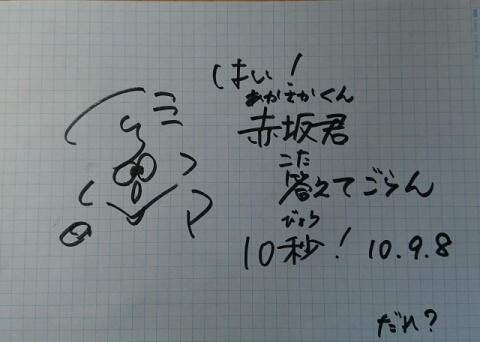 はい!
あかさかくん
赤坂君
こた
答えてごらん
びょう
10秒! 10.9.8
だれ?